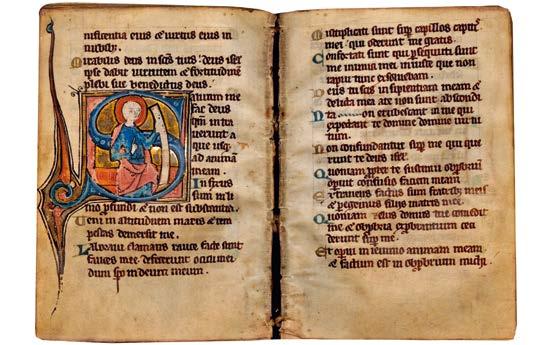 nificentia eius et virtus eius in
nubibʒ.
Mirabilis deus in scīs suis: deus isrł
ipse dabit virtutem et fortitudinē
plebi sue benedictus deus.
Salvum me
fac deus
qm̄ intra
verunt a
que usqʒ
ad animā
meam.
Infixus
sum in li
mo profundi et non est substantia.
Veni in altitudinem maris et tem
pestas demersit me.
Laboravi clamans rauce facte sunt
fauces mee: defecerunt oculi mei
dum spero in deum meum.
Multiplicati sunt sup̄ capillos capitis
mei: qui oderunt me gratis.
Confortati sunt qui persecuti sunt
me inimici mei iniuste que non
rapui tunc exsolvebam.
Deus tu scis insipientiam meam et
delicta mea a te non sunt abscondi
ta erubescant in me qui
expectant te domine domine virtu
tum.
Non confundantur sup̄ me qui que
runt te deus isrł.
Quoniam propter te sustinui obprobriū
operuit confusio faciem meam.
Extraneus factus sum fratribʒ meis
et peregrinus filiis matris mee.
Quoniam zelus domus tue comedit
me et obprobria exprobrantium ceci
derunt sup̄ me.
Et operui in ieiunio animam meam
et factum est in obprobrium michi.